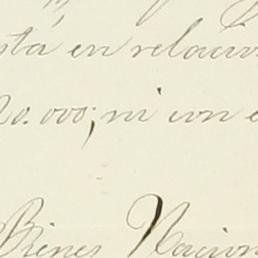 sta en relacion
20.000; ni con e
Bienes Nacion